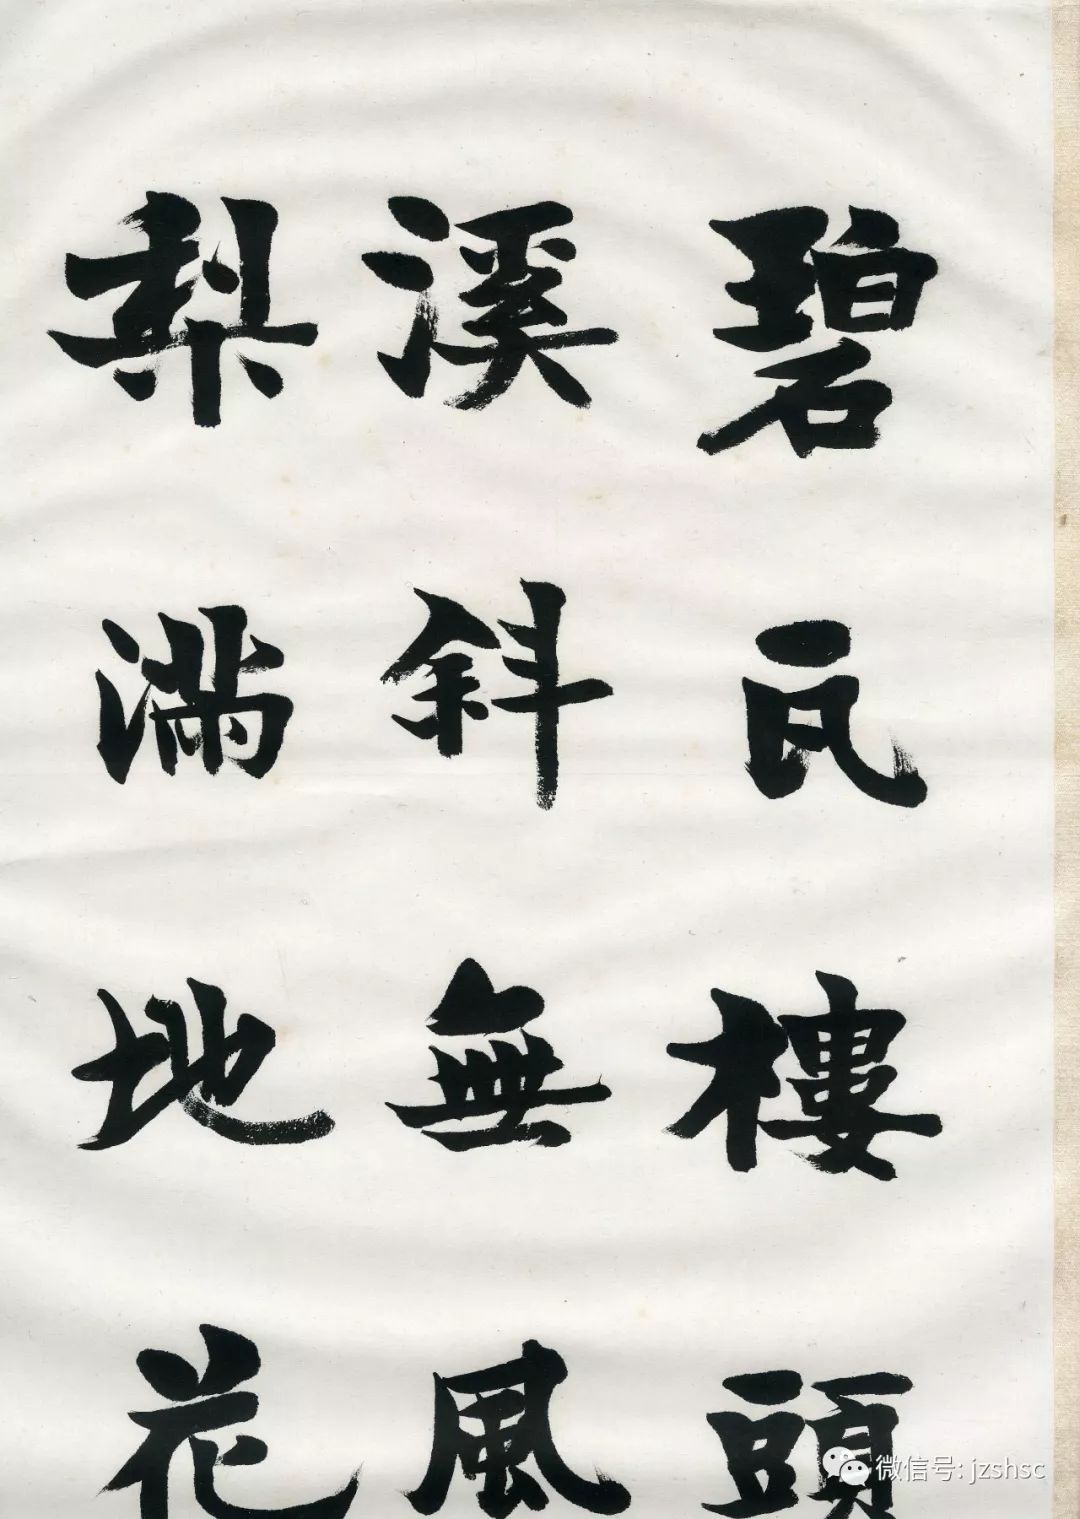 碧瓦樓頭
溪斜無風
梨滿地花
微信号: jzshsc